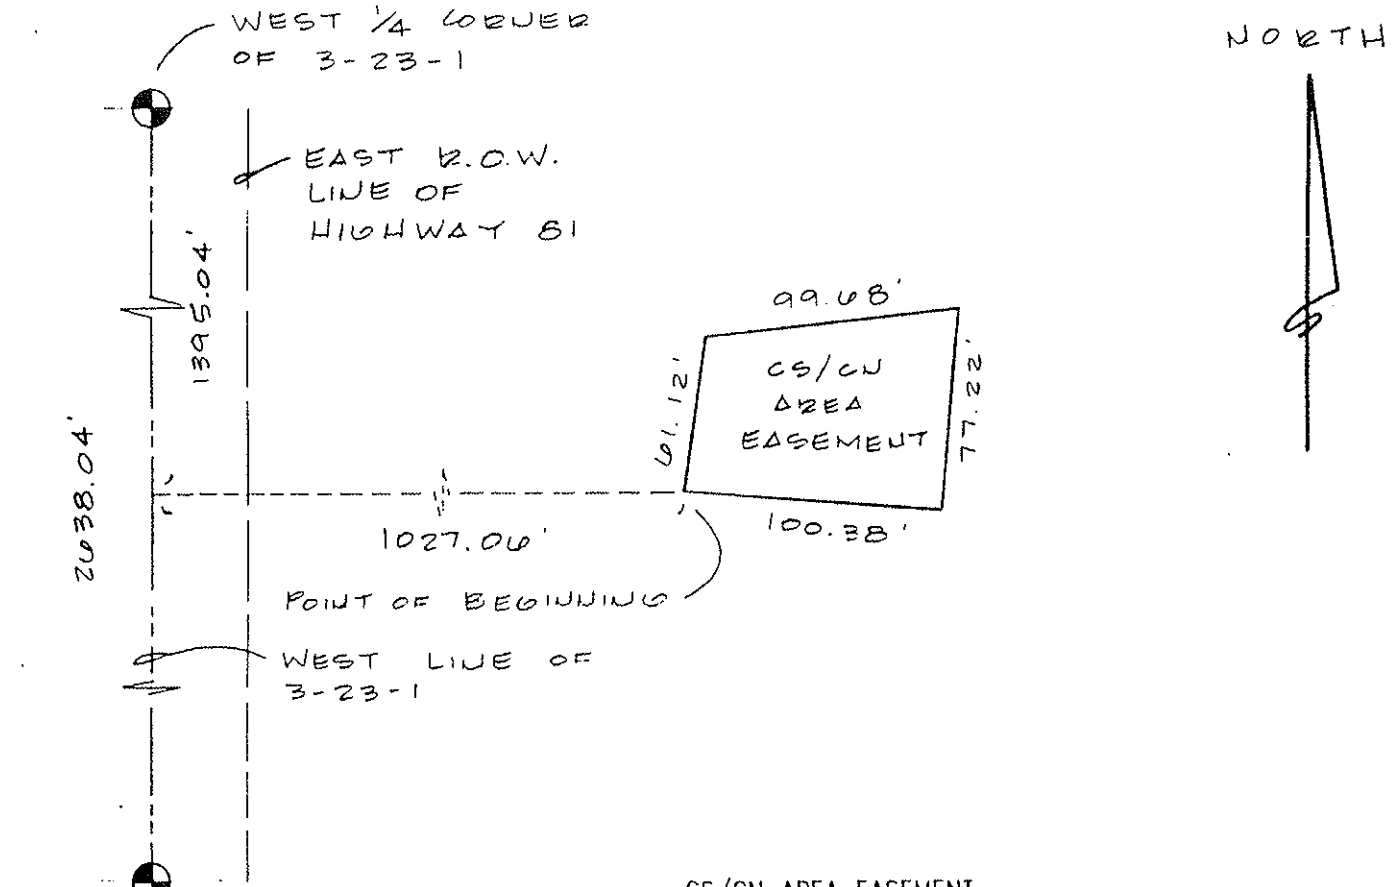 WEST 1/4 CORNER
OF 3-23-1
NORTH
EAST R.O.W.
LINE OF
HIGHWAY 81
1395.04'
2638.04'
99.68'
61.12'
CS/CN
AREA
EASEMENT
77.22'
100.38'
1027.06'
POINT OF BEGINNING
WEST LINE OF
3-23-1
CS/CN AREA EASEMENT